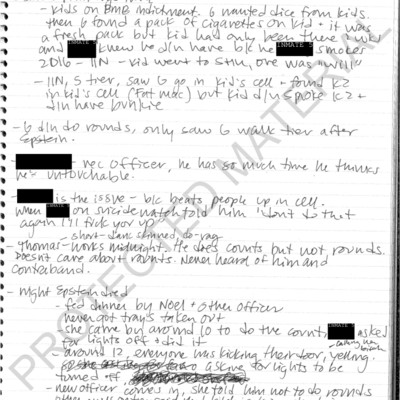 - kids on BMB indictment. G wanted dice from kids.
then G found a pack of cigarettes on kid + it was
a fresh pack but kid had only been there 1 wk
and INMATE 5 knew he d/n have b/c he INMATE 5 smokes
2016 - 11N - kid went to 5th, one was "will"
- 11N, 5 tier, saw G go in kid's cell + found K2
in kid's cell (Fat Mac) but kid d/n smoke K2 +
d/n have
- G d/n do rounds, only saw G walk tier after
Epstein.
- rec officer, he has so much time he thinks
he's untouchable.
- is the issue - b/c beats people up in cell.
When INMATE on suicide watch told him "don't do that
again I'll fuck you up"
- short, dark skinned, do-rag
- Thomas - works midnight. He does counts but not rounds.
Doesn't care about rounds. Never heard of him and
contraband.
- Night Epstein died
- fed dinner by Noel + other officer
never got trays taken out
- she came by around 10 to do the count, INMATE asked
for lights off + did it
calling her
- around 12, everyone was kicking their door, yelling
asking for lights to be
turned off
- new officer comes in, she told him not to do rounds
PROTECTED MATERIAL